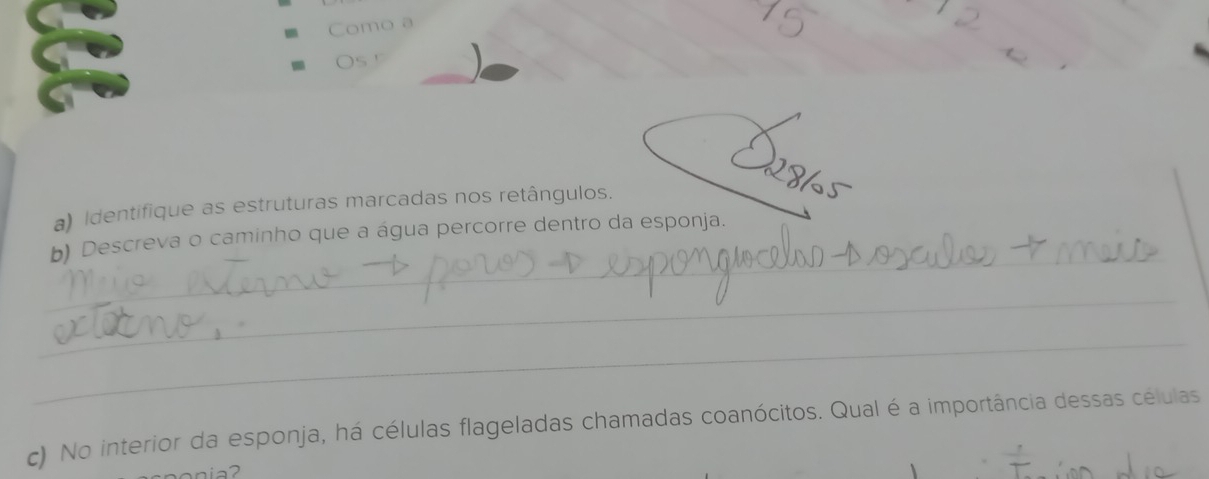 Como a
Os
15
12
28/05
a) Identifique as estruturas marcadas nos retângulos.
b) Descreva o caminho que a água percorre dentro da esponja.
Meio externo → poros → espongiocelas → osculos → meio
externo.
c) No interior da esponja, há células flageladas chamadas coanócitos. Qual é a importância dessas células